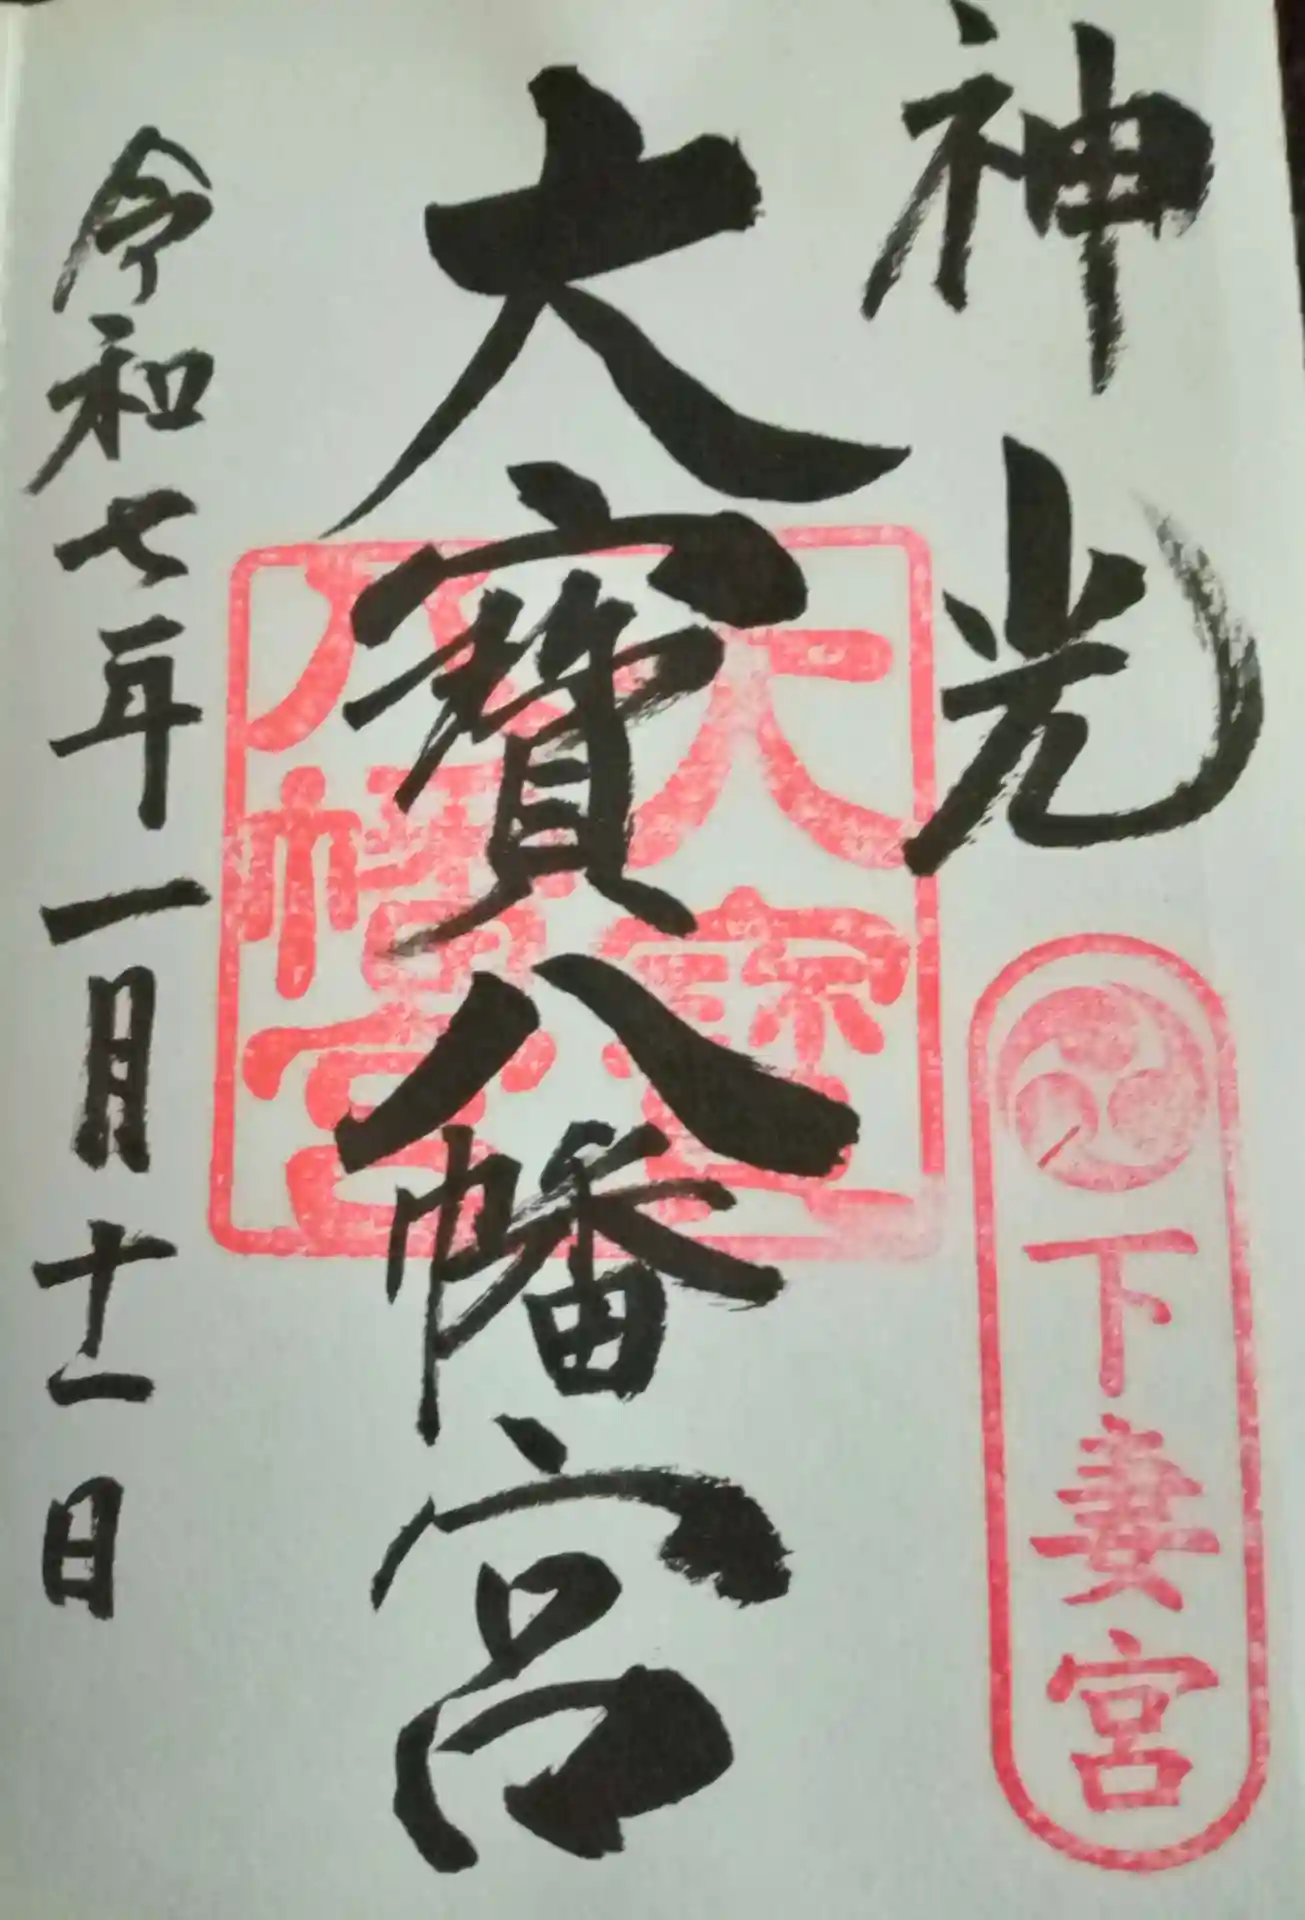 神光
下妻宮
大寶八幡宮
大寶
八幡宮
令和七年一月十一日